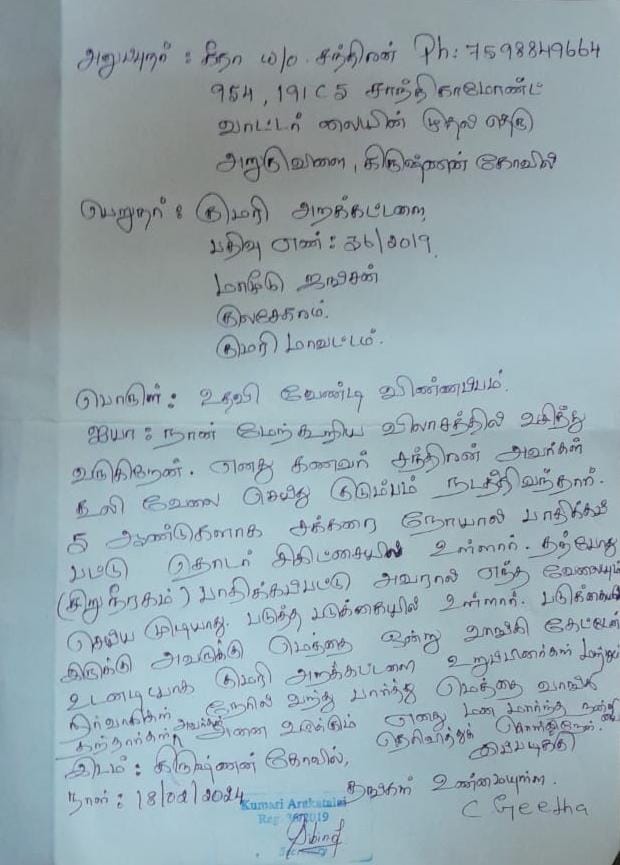 அனுப்புநர் : கீதா w/o. சந்திரன் Ph: 7598849664
954, 191C5 சாந்திகாமோண்ட்
வாட்டர் லையின் முதல் தெரு
அறுகுவிளை, கிருஷ்ணன் கோவில்
பெறுநர் : குமரி அறக்கட்டளை
பதிவு எண் : 36/2019.
மாமூடு ஜங்சன்
குலசேகரம்.
குமரி மாவட்டம்.
பொருள் : உதவி வேண்டி விண்ணப்பம்.
ஐயா : நான் மேற்கூறிய விலாசத்தில் வசித்து
வருகிறேன். எனது கணவர் சந்திரன் அவர்கள்
கூலி வேலை செய்து குடும்பம் நடத்திவந்தார்.
5 ஆண்டுகளாக சக்கரை நோயால் பாதிக்கப்
பட்டு தொடர் சிகிட்சையில் உள்ளார். தற்போது
(சிறுநீரகம்) பாதிக்கப்பட்டு அவரால் எந்த வேலையும்
செய்ய முடியாது. படுத்த படுக்கையில் உள்ளார். படுக்கையில்
இருக்கு அவருக்கு மெத்தை ஒன்று வாங்கி கேட்டேன்
உடனடியாக குமரி அறக்கட்டளை உறுப்பினர்கள் மற்றும்
நிர்வாகிகள் நேரில் வந்து பார்த்து மெத்தை வாங்கி
தந்தார்கள் அவர்கள் அனைவருக்கும் எனது மன மார்ந்த நன்றியை
தெரிவித்துக் கொள்கிறேன்.
இடம் : கிருஷ்ணன் கோவில், இப்படிக்கு
நாள் : 18/02/2024 தங்கள் உண்மையுள்ள.
C Geetha
Kumari Arakatalai
Reg. 36/2019